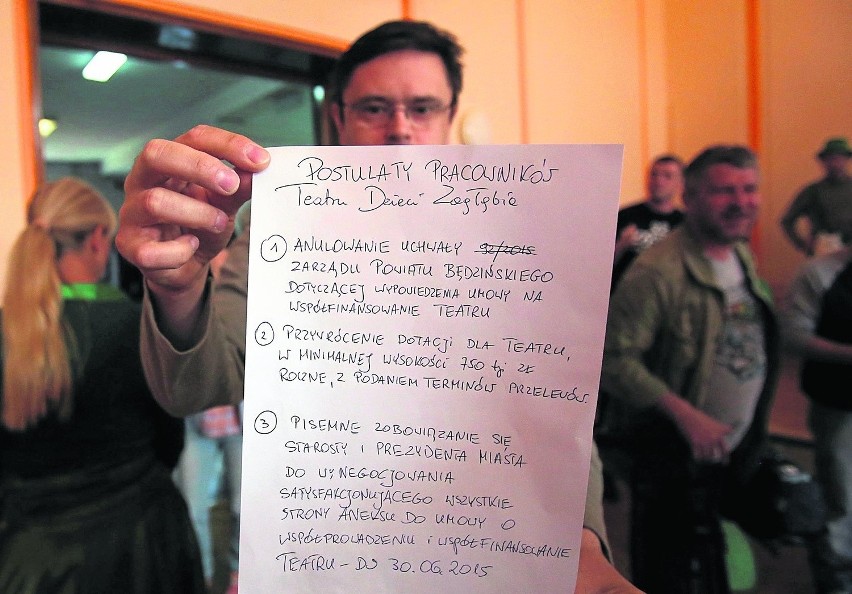 POSTULATY PRACOWNIKÓW
Teatru Dzieci Zagłębia
1 ANULOWANIE UCHWAŁY 92/2015
ZARZĄDU POWIATU BĘDZIŃSKIEGO
DOTYCZĄCEJ WYPOWIEDZENIA UMOWY NA
WSPÓŁFINANSOWANIE TEATRU
2 PRZYWRÓCENIE DOTACJI DLA TEATRU,
W MINIMALNEJ WYSOKOŚCI 750 tyś ZŁ
ROCZNE, Z PODANIEM TERMINÓW PRZELEWÓW.
3 PISEMNE ZOBOWIĄZANIE SIĘ
STAROSTY I PREZYDENTA MIASTA
DO WYNEGOCJOWANIA
SATYSFAKCJONUJĄCEGO WSZYSTKIE
STRONY ANEKSU DO UMOWY O
WSPÓŁPROWADZENIU I WSPÓŁFINANSOWANIE
TEATRU - DO 30.06.2015